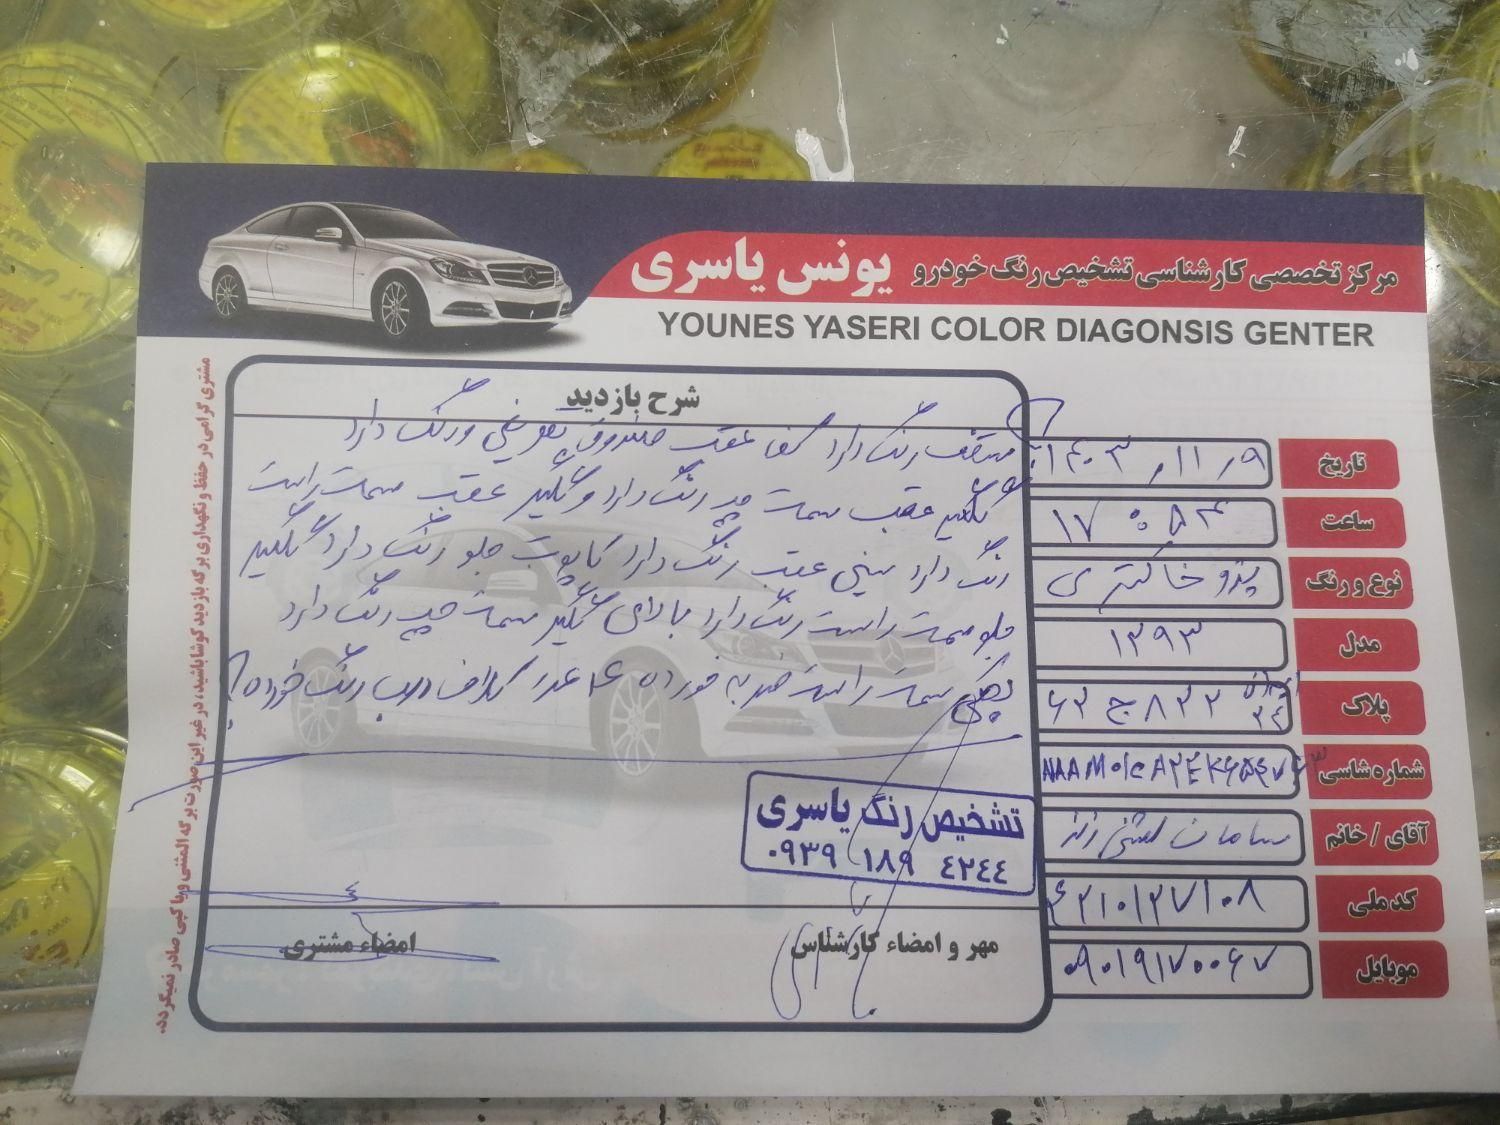 مرکز تخصصی کارشناسی تشخیص رنگ خودرو یونس یاسری
YOUNES YASERI COLOR DIAGONSIS GENTER
شرح بازدید
سقف رنگ دارد کف عقب صندوق تعویض و رنگ دارد
گلگیر عقب سمت چپ رنگ دارد و گلگیر عقب سمت راست
رنگ دارد سینی عقب رنگ دارد کاپوت جلو رنگ دارد گلگیر
جلو سمت راست رنگ دارد بالای گلگیر سمت چپ رنگ دارد
سمت راست ضربه خورده ۴ عدد درب رنگ خورده
تاریخ ۱۴۰۳/۱۱/۹
ساعت ۱۷:۵۴
نوع و رنگ پژو خاکستری
مدل ۱۳۹۳
پلاک ۶۳ ج ۸۳۲ ایران ۲۴
شماره شاسی
آقای / خانم سامان
کد ملی ۴۲۱۰۱۲۷۱۰۸
موبایل ۰۹۰۱۹۱۷۰۰۶۷
تشخیص رنگ یاسری
۰۹۳۹ ۱۸۹ ٤٢٤٤
مهر و امضاء کارشناس
امضاء مشتری
مشتری گرامی در حفظ و نگهداری برگه بازدید کوشا باشید، در غیر این صورت برگه المثنی و یا کپی صادر نمیگردد.